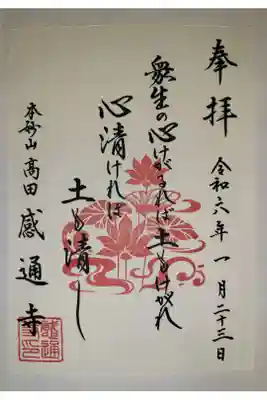 奉拝
令和六年一月二十三日
衆生の心けがるれば土もけがれ
心清ければ
土も清し
本妙山髙田感通寺